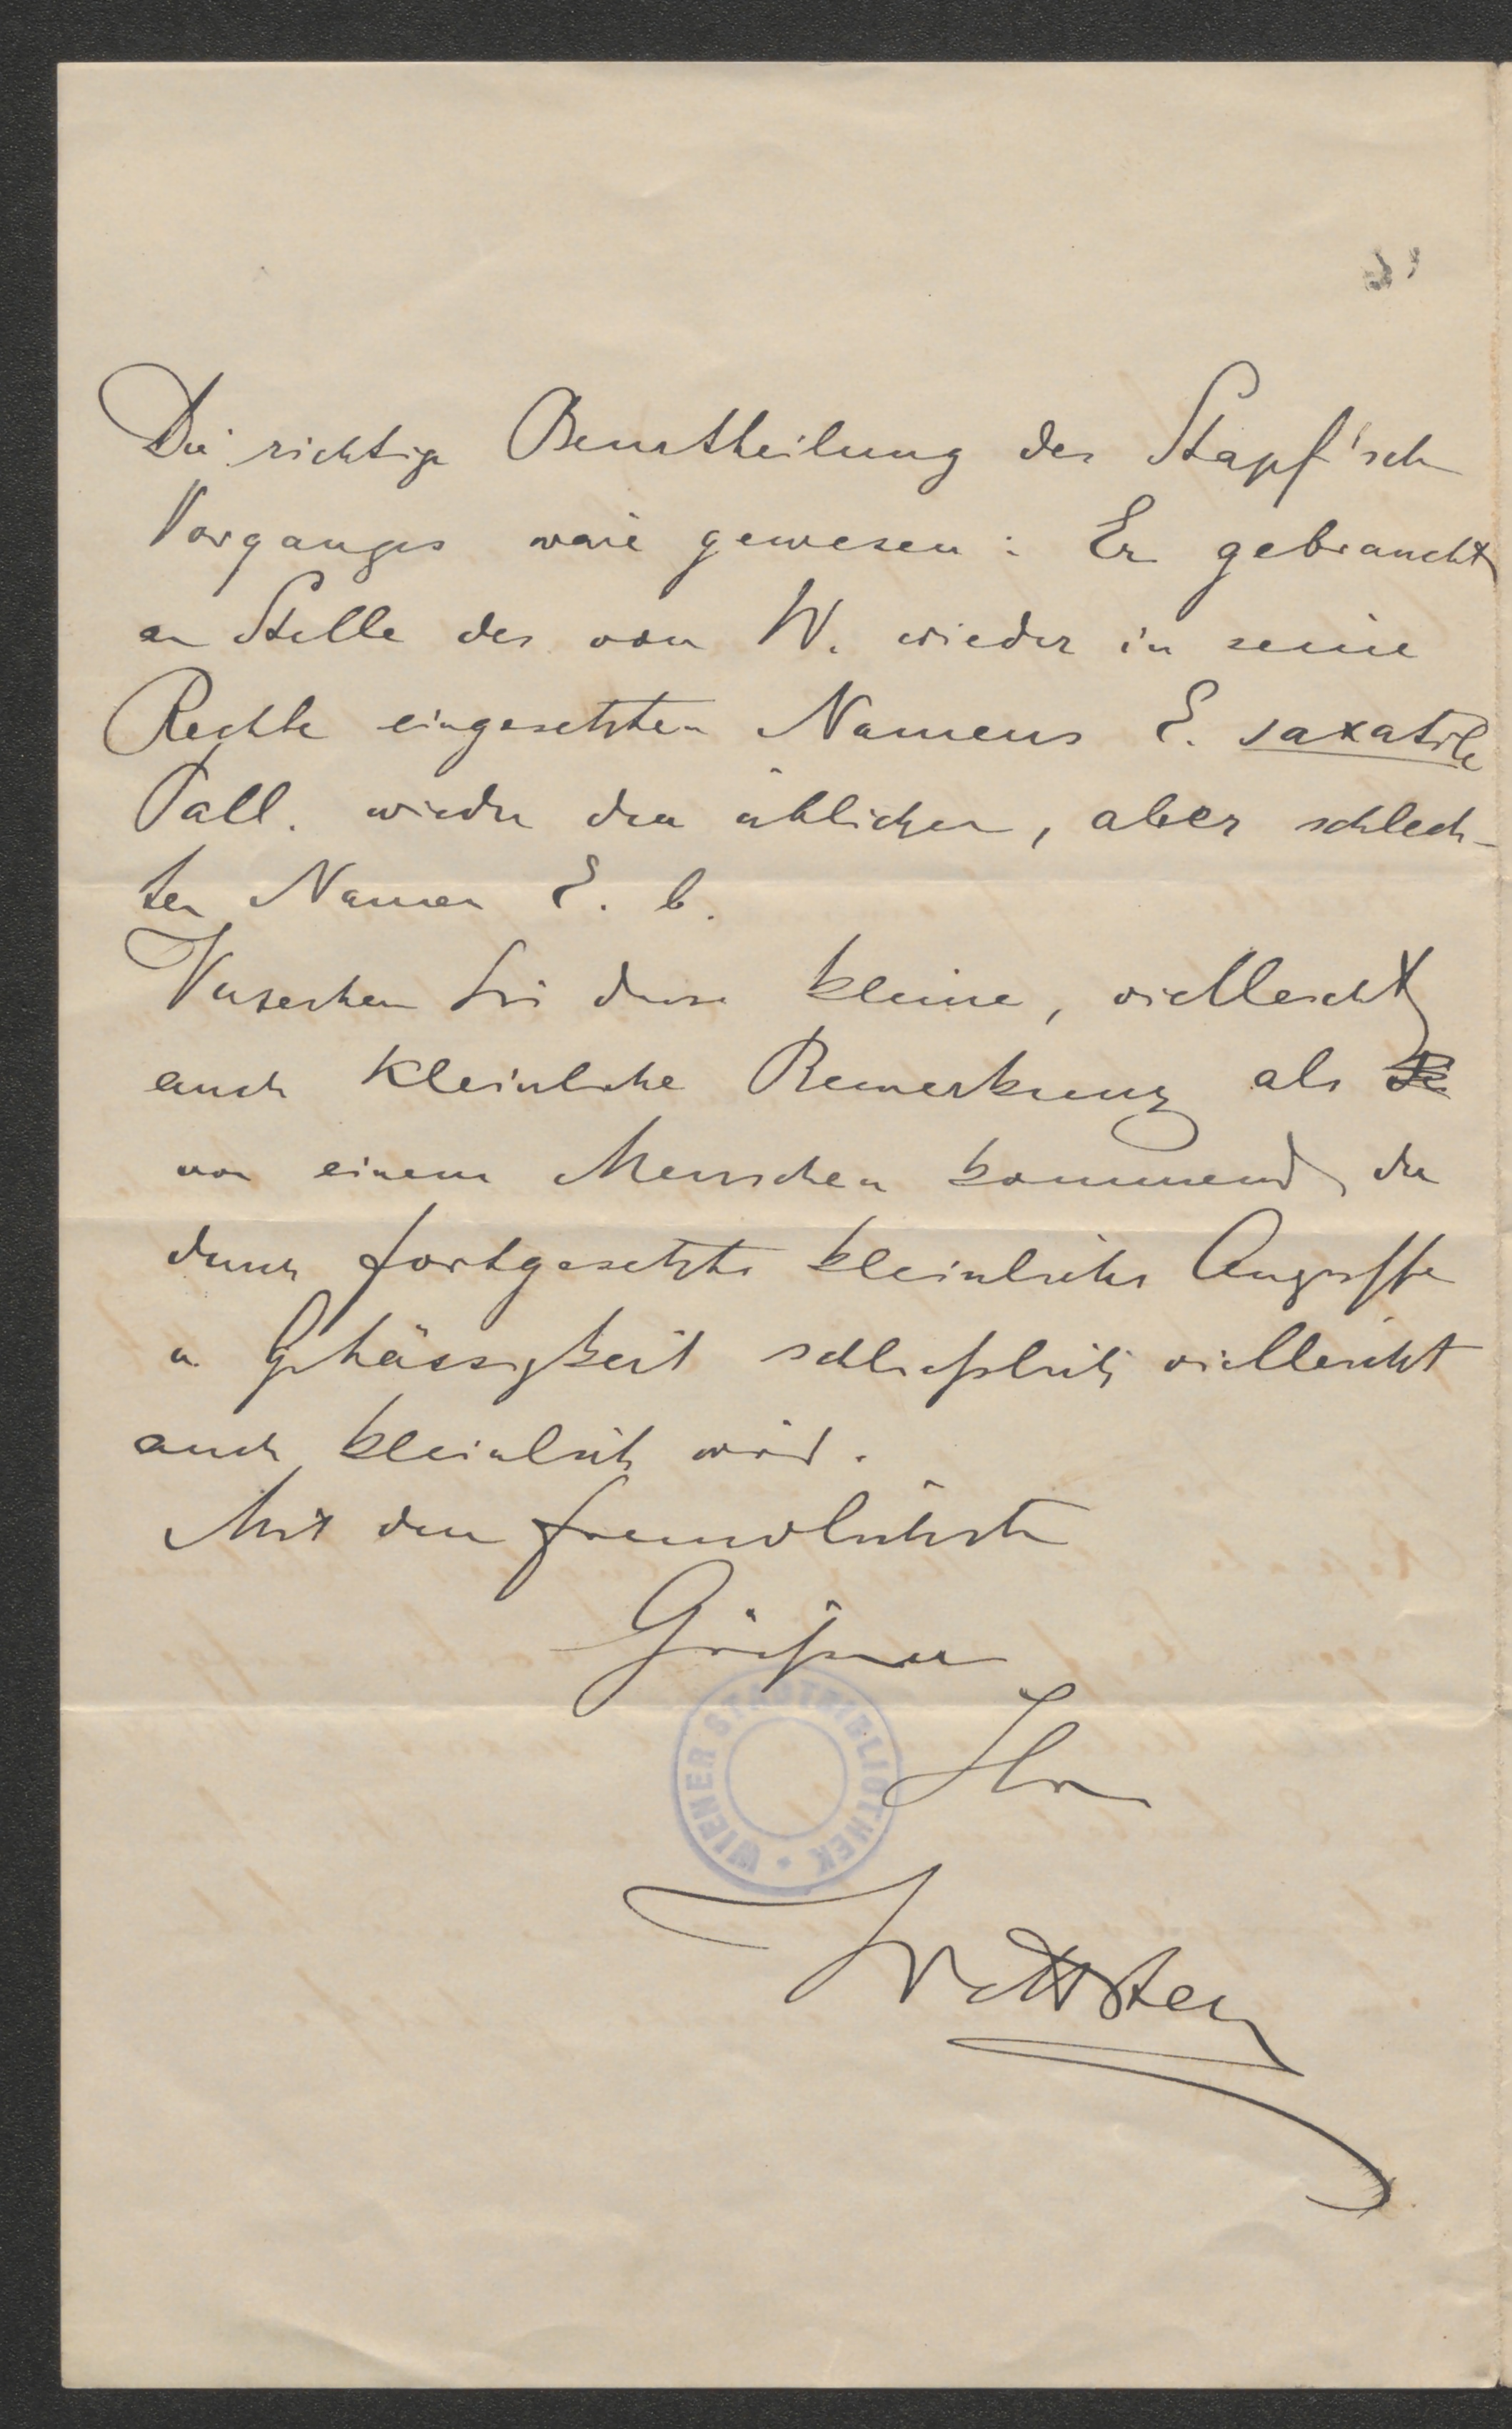 Die richtige Beurtheilung des Stapf'schen
Vorganges wäre gewesen: Er gebraucht
an Stelle des von W. wieder in seine
Rechte eingesetzten Namens E. saxatile
Pall. wieder den üblichen, aber schlech-
ten Namen E. b.
Verzeihen Sie diese kleine, vielleicht
auch kleinliche Bemerkung als
von einem Menschen kommend, der
durch fortgesetzte kleinliche Angriffe
u. Gehässigkeit schließlich vielleicht
auch kleinlich wird.
Mit den freundlichsten
Grüßen
Ihr
Wettstein
WIENER STADTBIBLIOTHEK